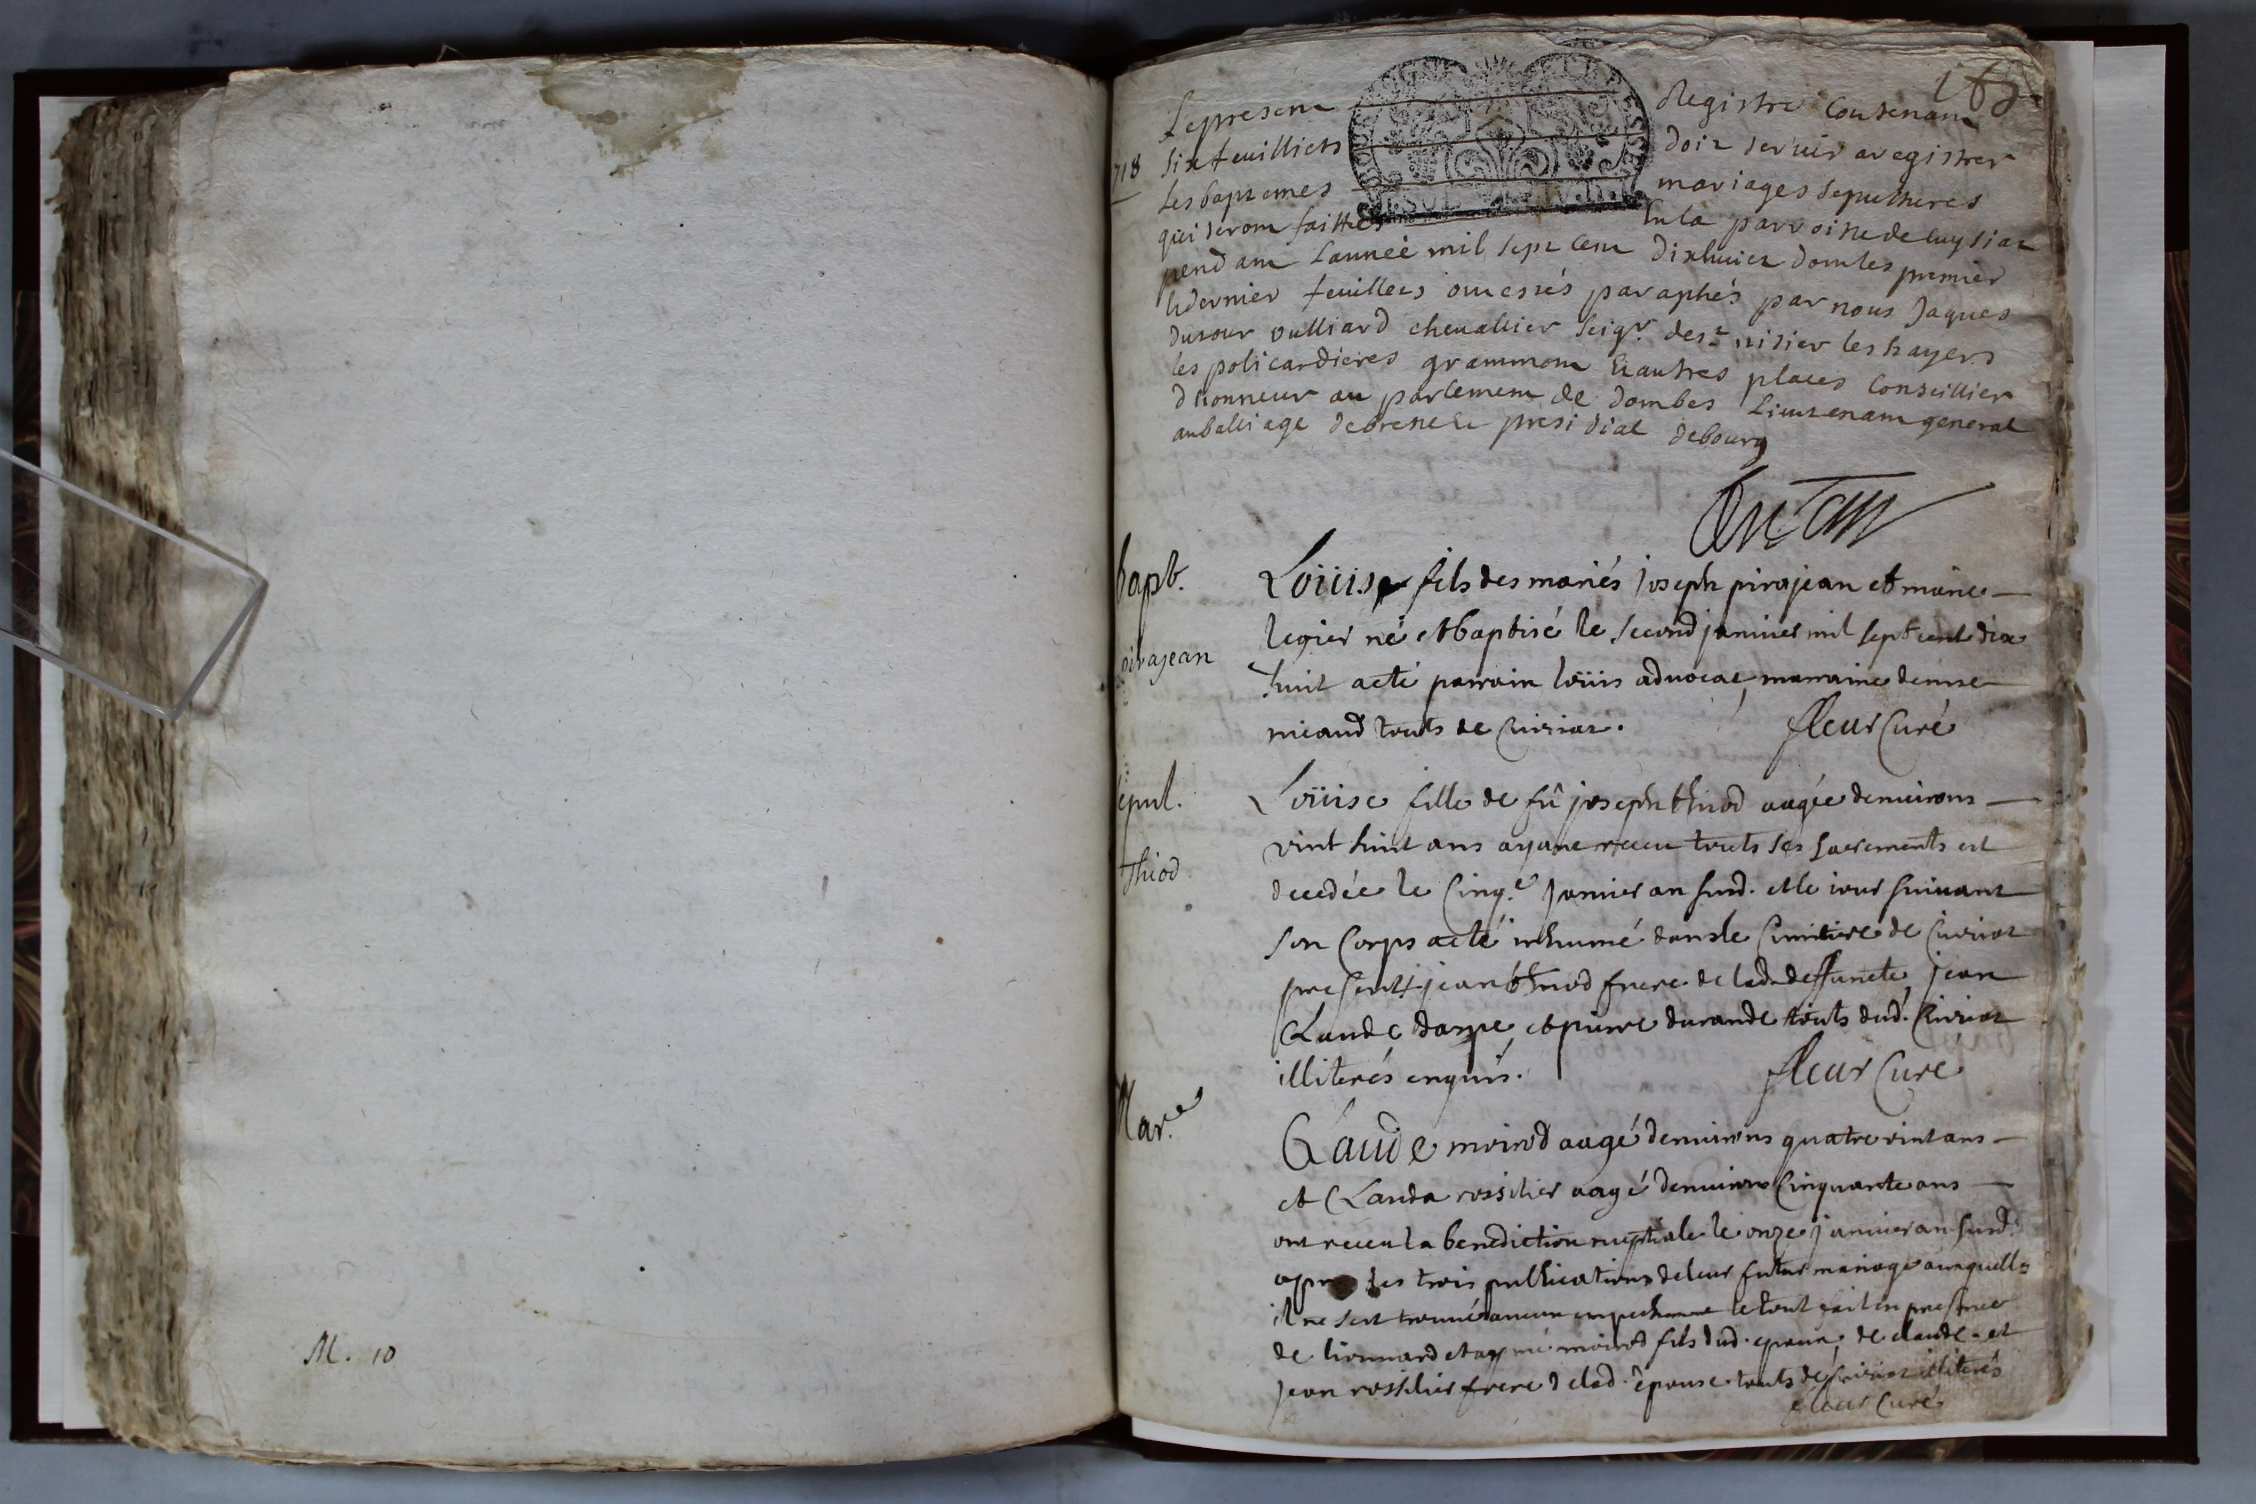 M. 10
Le present Registre Contenant
718
six feuilliets doit servir a registrer
les baptemes mariages sepultures
qui seront faittes en la parroisse de Cuysiat
pendant Lannée mil sept Cent dixhuict dont les premier
et dernier feuillets ont estés paraphés par nous Jaques
dutour vulliard chevallier Seigr. de st nisier les
les policardieres grammont et autres places Conseillier
d honneur au parlement de dombes Lieutenant general
au balliage de bresse et presidial de bourg
bapt.
Loüis fils des mariés Joseph pirajean et marie
legier né et baptisé le second janvier mil sept cent dix
pirajean
huit a eté parrain loüis advocat, marraine denise
micaud touts de Cuisiat. fleur Curé
sepul.
Loüise fille de fû joseph thiod aagée denvirons
vint huit ans ayant receu touts ses sacrements est
Thiod
decedée le Cinqe. Janvier an susd. et le jour suivant
son Corps a eté inhumé dans le Cimitiere de Cuisiat
presents jean thiod frere de lad. deffuncte, jean
Claude et pierre durande touts dud. Cuisiat
illiterés enquis. fleur Curé
Mar.e
Claude moirod aagé denvirons quatre vint ans
et Clauda rossilier aagé denvirons Cinquante ans
ont receu la benediction nuptiale le onze janvier an susd.
apres les trois publications de leur futur mariage auxquell=
il ne sest trouvé aucun empechement le tout fait en presence
de lionnard et aymé moirod fils dud. epoux, de claude et
jean rossilier frere de lad. épouse touts de Cuisiat illiterés
fleur Curé